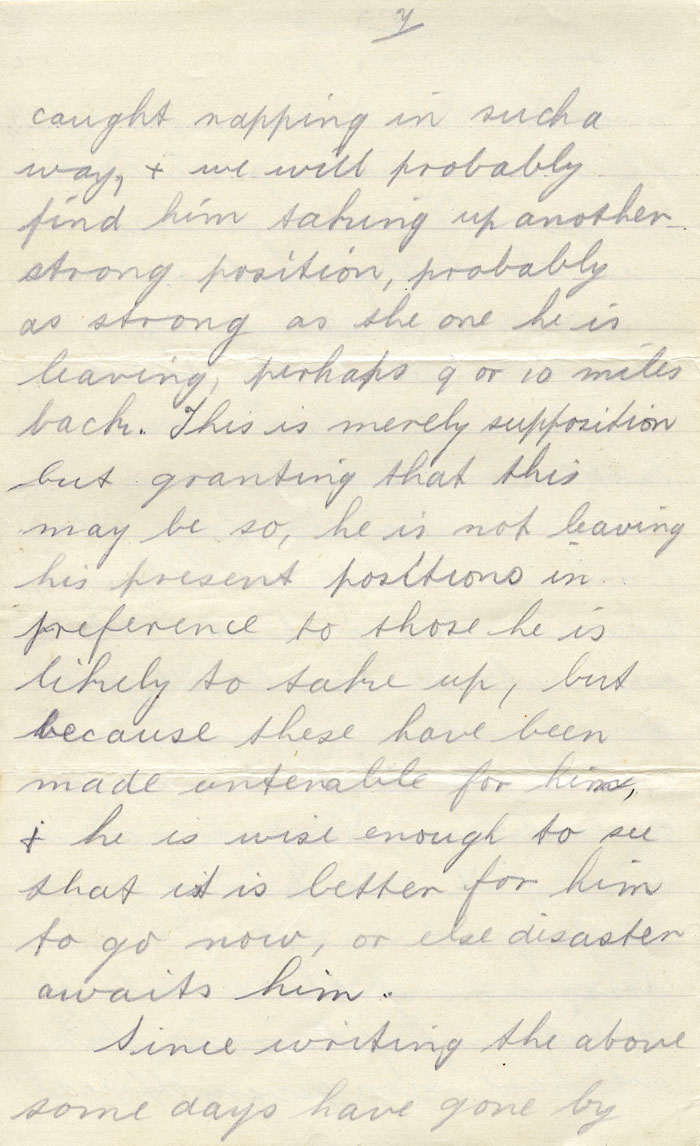 caught napping in such a
way, + we will probably
find him taking up another
strong position, probably
as strong as the one he is
leaving, perhaps 9 or 10 miles
back. This is merely supposition
but granting that this
may be so, he is not leaving
his present positions in
preference to those he is
likely to take up, but
because these have been
made untenable for him,
+ he is wise enough to see
that it is better for him
to go now, or else disaster
awaits him.
Since writing the above
some days have gone by